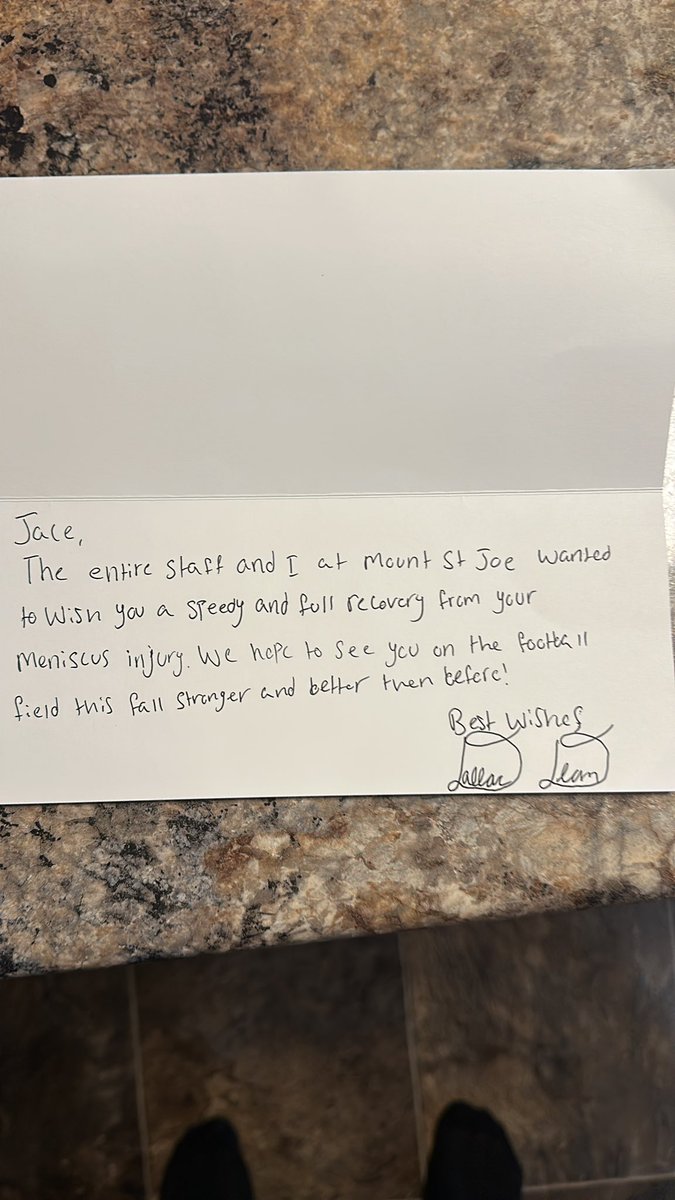 Jace,
The entire staff and I at Mount St Joe wanted
to wish you a speedy and full recovery from your
meniscus injury. We hope to see you on the football
field this fall stronger and better then before!
Best Wishes